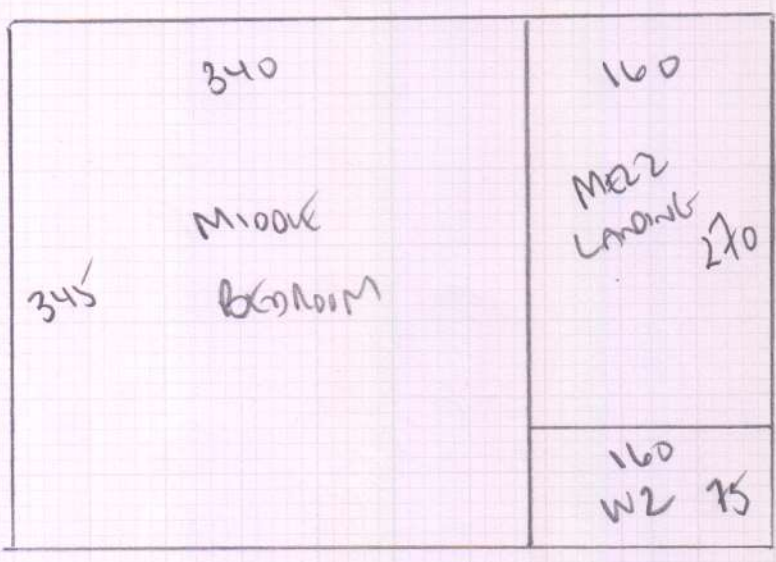 340
MIDDLE
BEDROOM
345
160
MEZZ
LANDING
270
160
W2 75